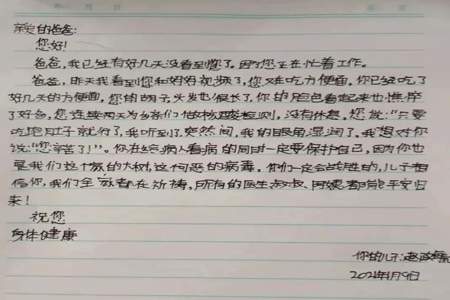 亲爱的爸爸:
您好!
爸爸,我已经有好几天没看到您了。因为您正在忙着工作。
爸爸,昨天我看到您和妈妈视频了,您又在吃方便面,你已经吃了
好几天的方便面,您的胡子、头发也很长了,你的脸色看起来也憔悴
了好多,您连续两天为乡亲们做核酸检测,没有休息,您说:“只要
吃饱肚子就行了,我听到了突然间,我的眼角湿润了,我想对你
说:“您辛苦了!”。你在给病人看病的同时一定要保护自己,因为你也
是我们这个家的大树,这可恶的病毒,你们一定会战胜的,儿子相
信你,我们全家都在祈祷,所有的医生叔叔、阿姨都能平安归
来!
祝您
身体健康
你的儿子:赵
2021年1月9日